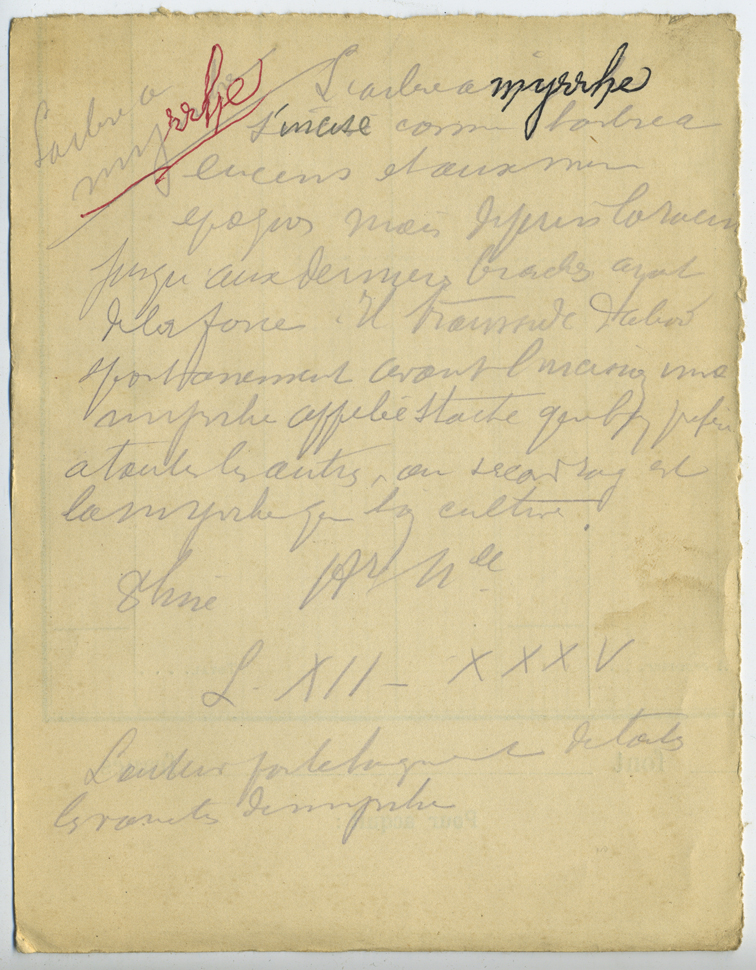 L'arbre a
myrrhe
L'arbre a myrrhe
s'incise comme l'arbre a
encens et aux memes
epoques mais depuis la racine
jusqu'aux dernieres branches ayant
de la force. Il transsude d'abord
spontanement avant l'incision une
myrrhe appelée stacte que l'on prefere
a toutes les autres, au second rang est
la myrrhe que l'on cultive.
Pline Hre Nlle
L. XII - XXXV
L'auteur parle longuement de toutes
les varietes de myrrhe